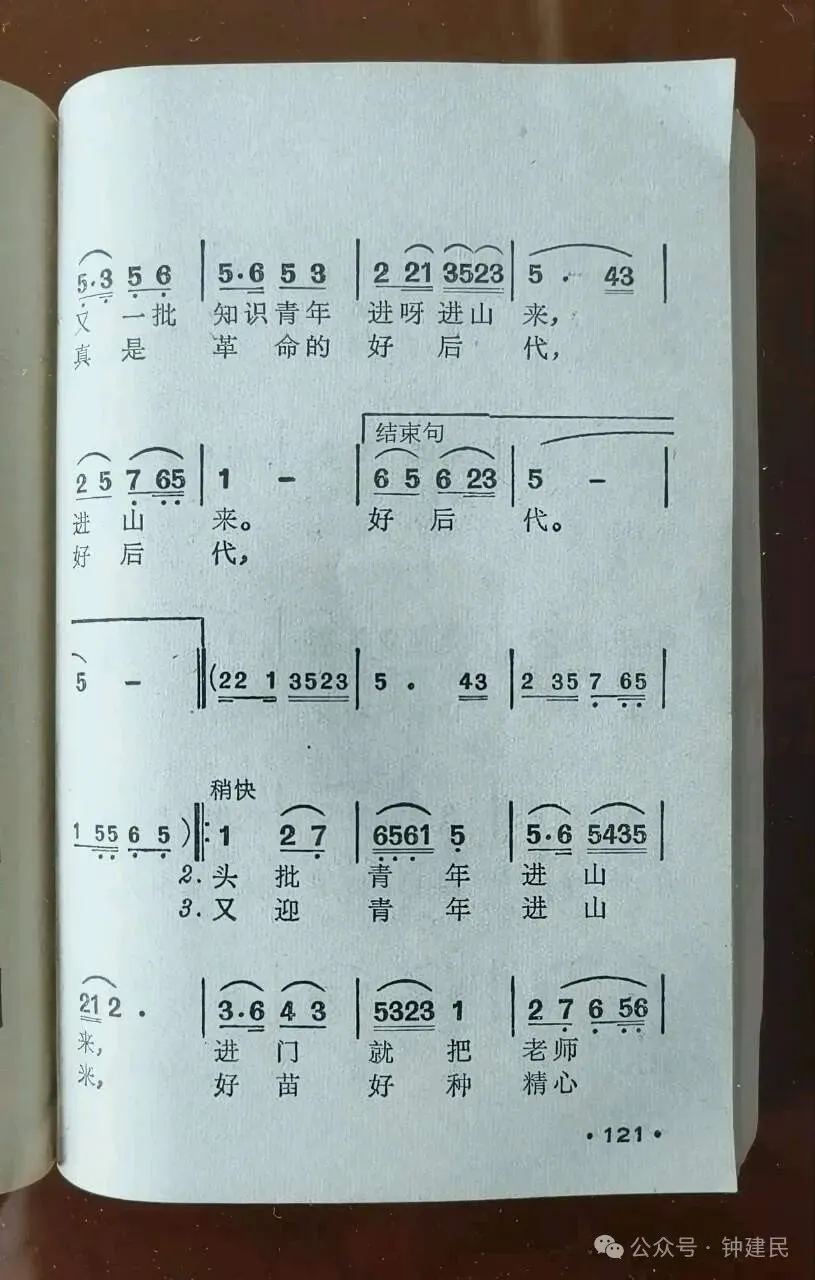 5·3 5 6 | 5·6 5 3 | 2 21 3523 | 5 · 43 |
又 一批 知识青年 进呀进山 来,
真 是 革 命的 好 后 代,
结束句
2 5 7 65 | 1 - | 6 5 6 23 | 5 - |
进 山 来。 好 后 代。
好 后 代,
5 - ‖ (22 1 3523 | 5 · 43 | 2 35 7 65 |
稍快
1 55 6 5 )‖: 1 2 7 | 6561 5 | 5·6 5435 |
2. 头 批 青 年 进 山
3. 又 迎 青 年 进 山
21 2 · | 3·6 4 3 | 5323 1 | 2 7 6 56 |
来, 进 门 就 把 老师
米, 好 苗 好 种 精心
·121·
公众号·钟建民